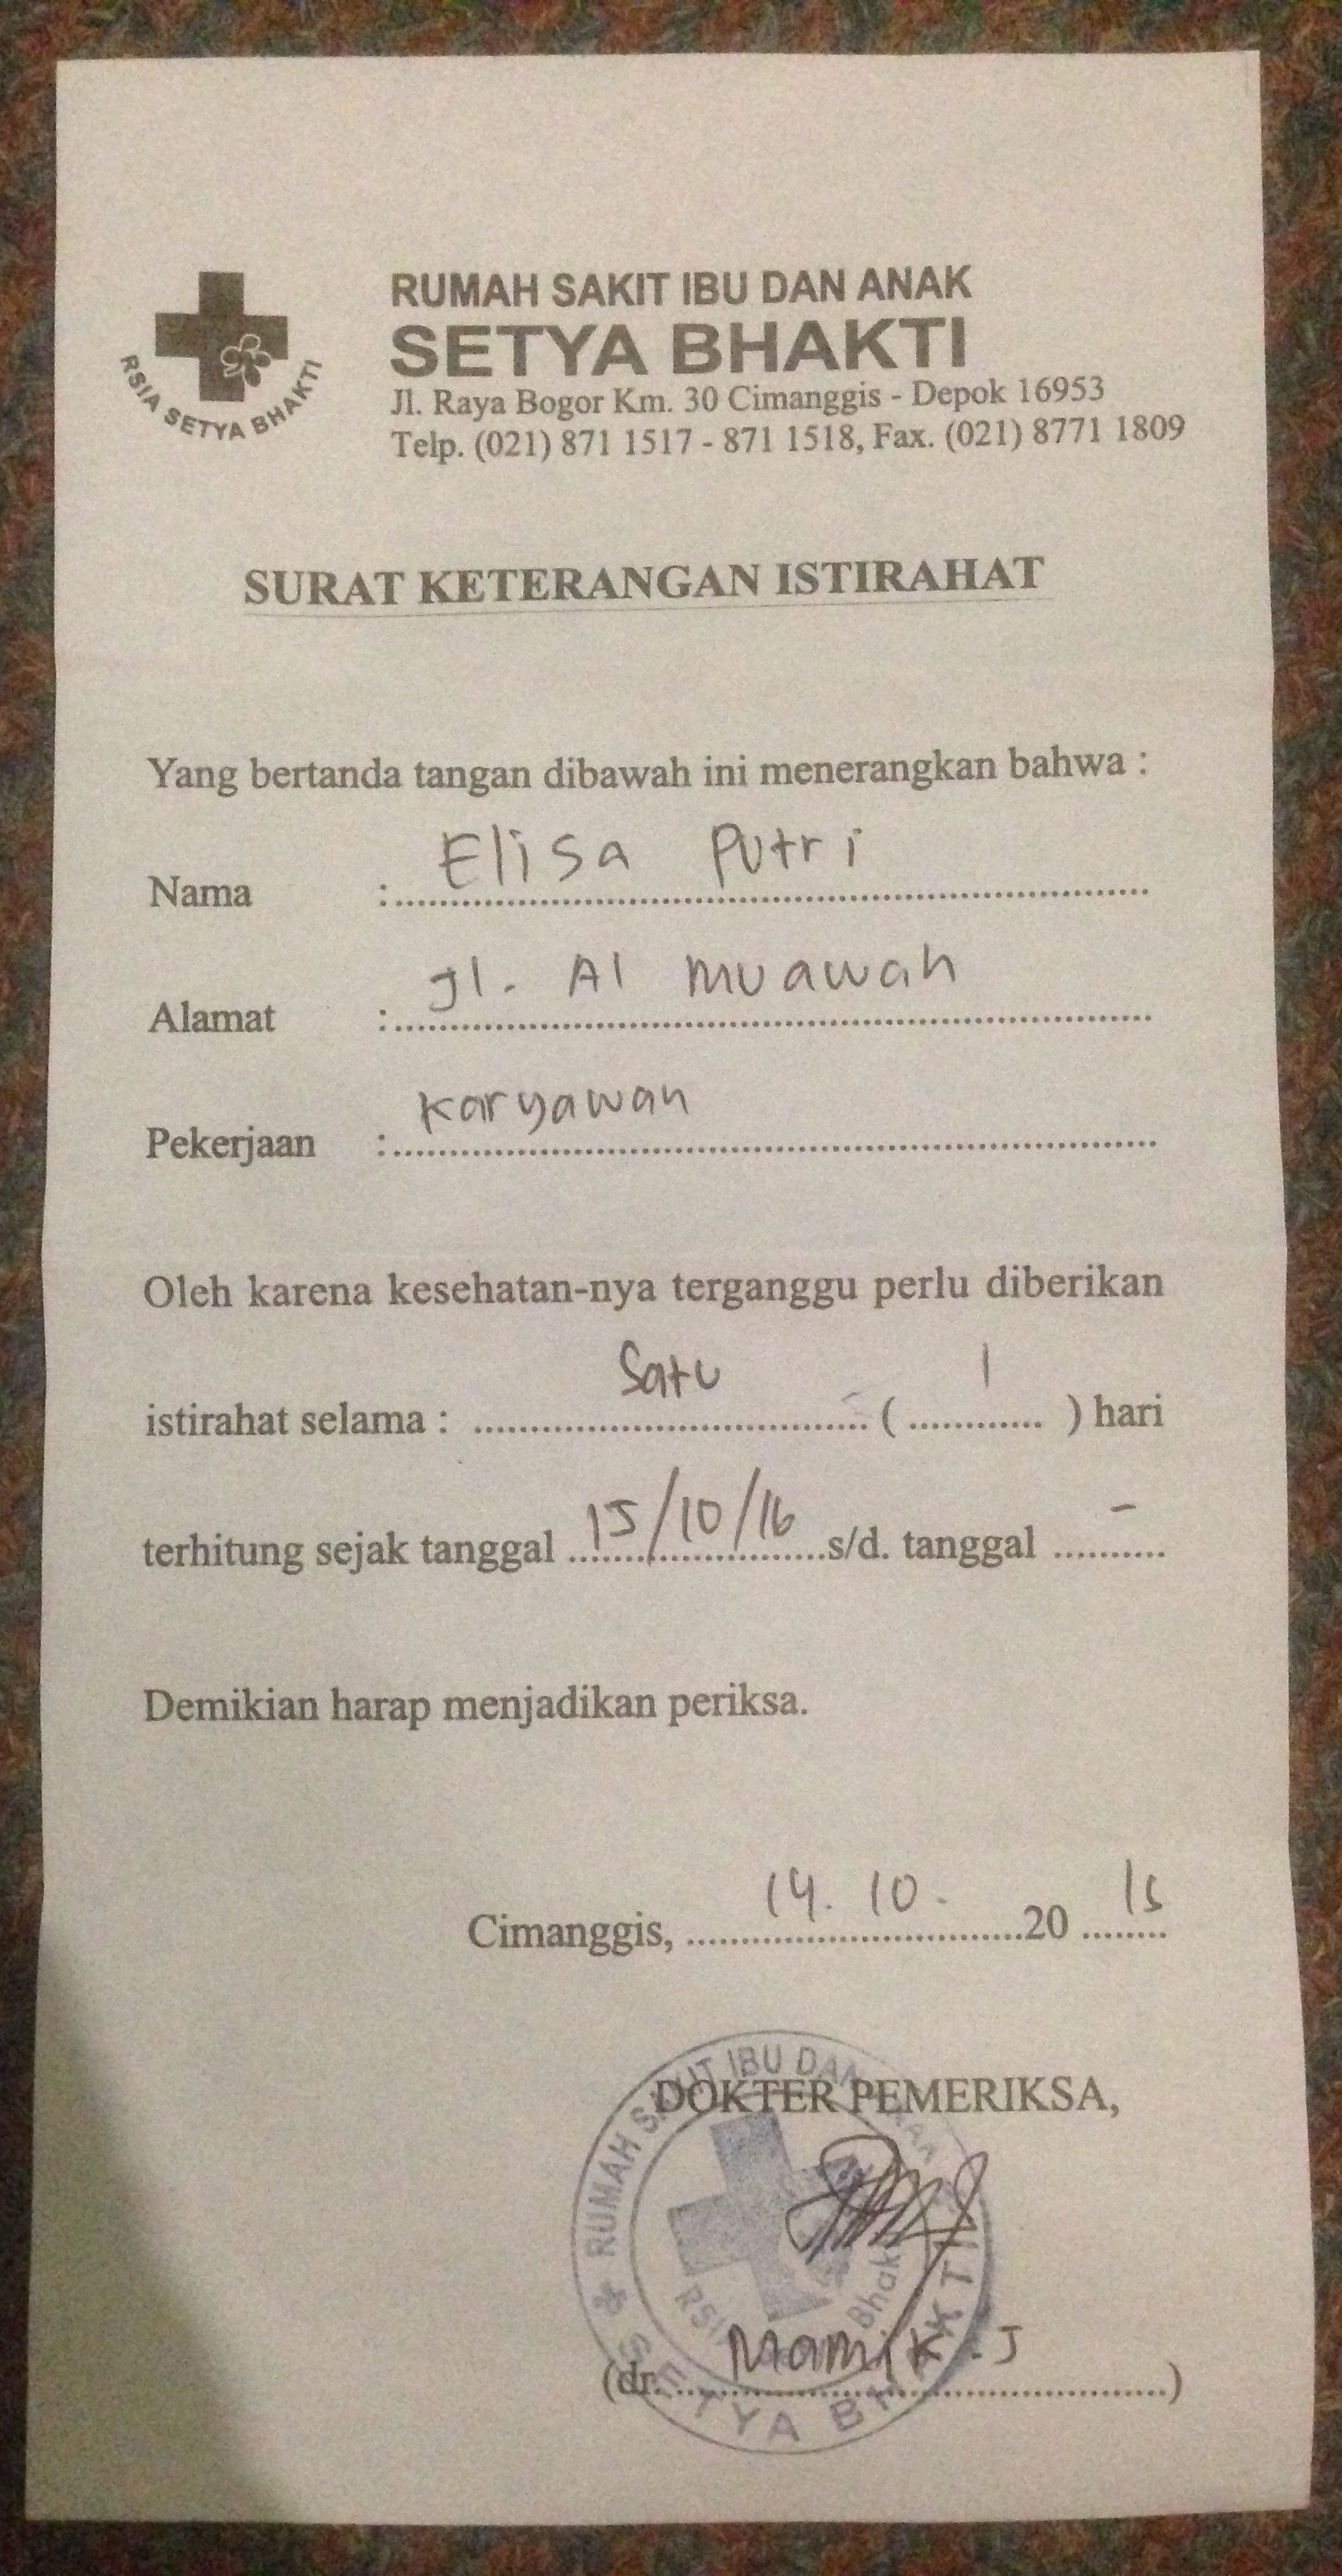 RSIA SETYA BHAKTI
RUMAH SAKIT IBU DAN ANAK
SETYA BHAKTI
Jl. Raya Bogor Km. 30 Cimanggis - Depok 16953
Telp. (021) 871 1517 - 871 1518, Fax. (021) 8771 1809
SURAT KETERANGAN ISTIRAHAT
Yang bertanda tangan dibawah ini menerangkan bahwa :
Nama : Elisa Putri
Alamat : Jl. Al Muawah
Pekerjaan : Karyawan
Oleh karena kesehatan-nya terganggu perlu diberikan
istirahat selama : Satu ( 1 ) hari
terhitung sejak tanggal 15/10/16 s/d. tanggal -
Demikian harap menjadikan periksa.
Cimanggis, 14. 10. 20 15
DOKTER PEMERIKSA,
RUMAH SAKIT IBU DAN ANAK
SETYA BHAKTI
RSIA Bhakti
(dr. Mamik. J)